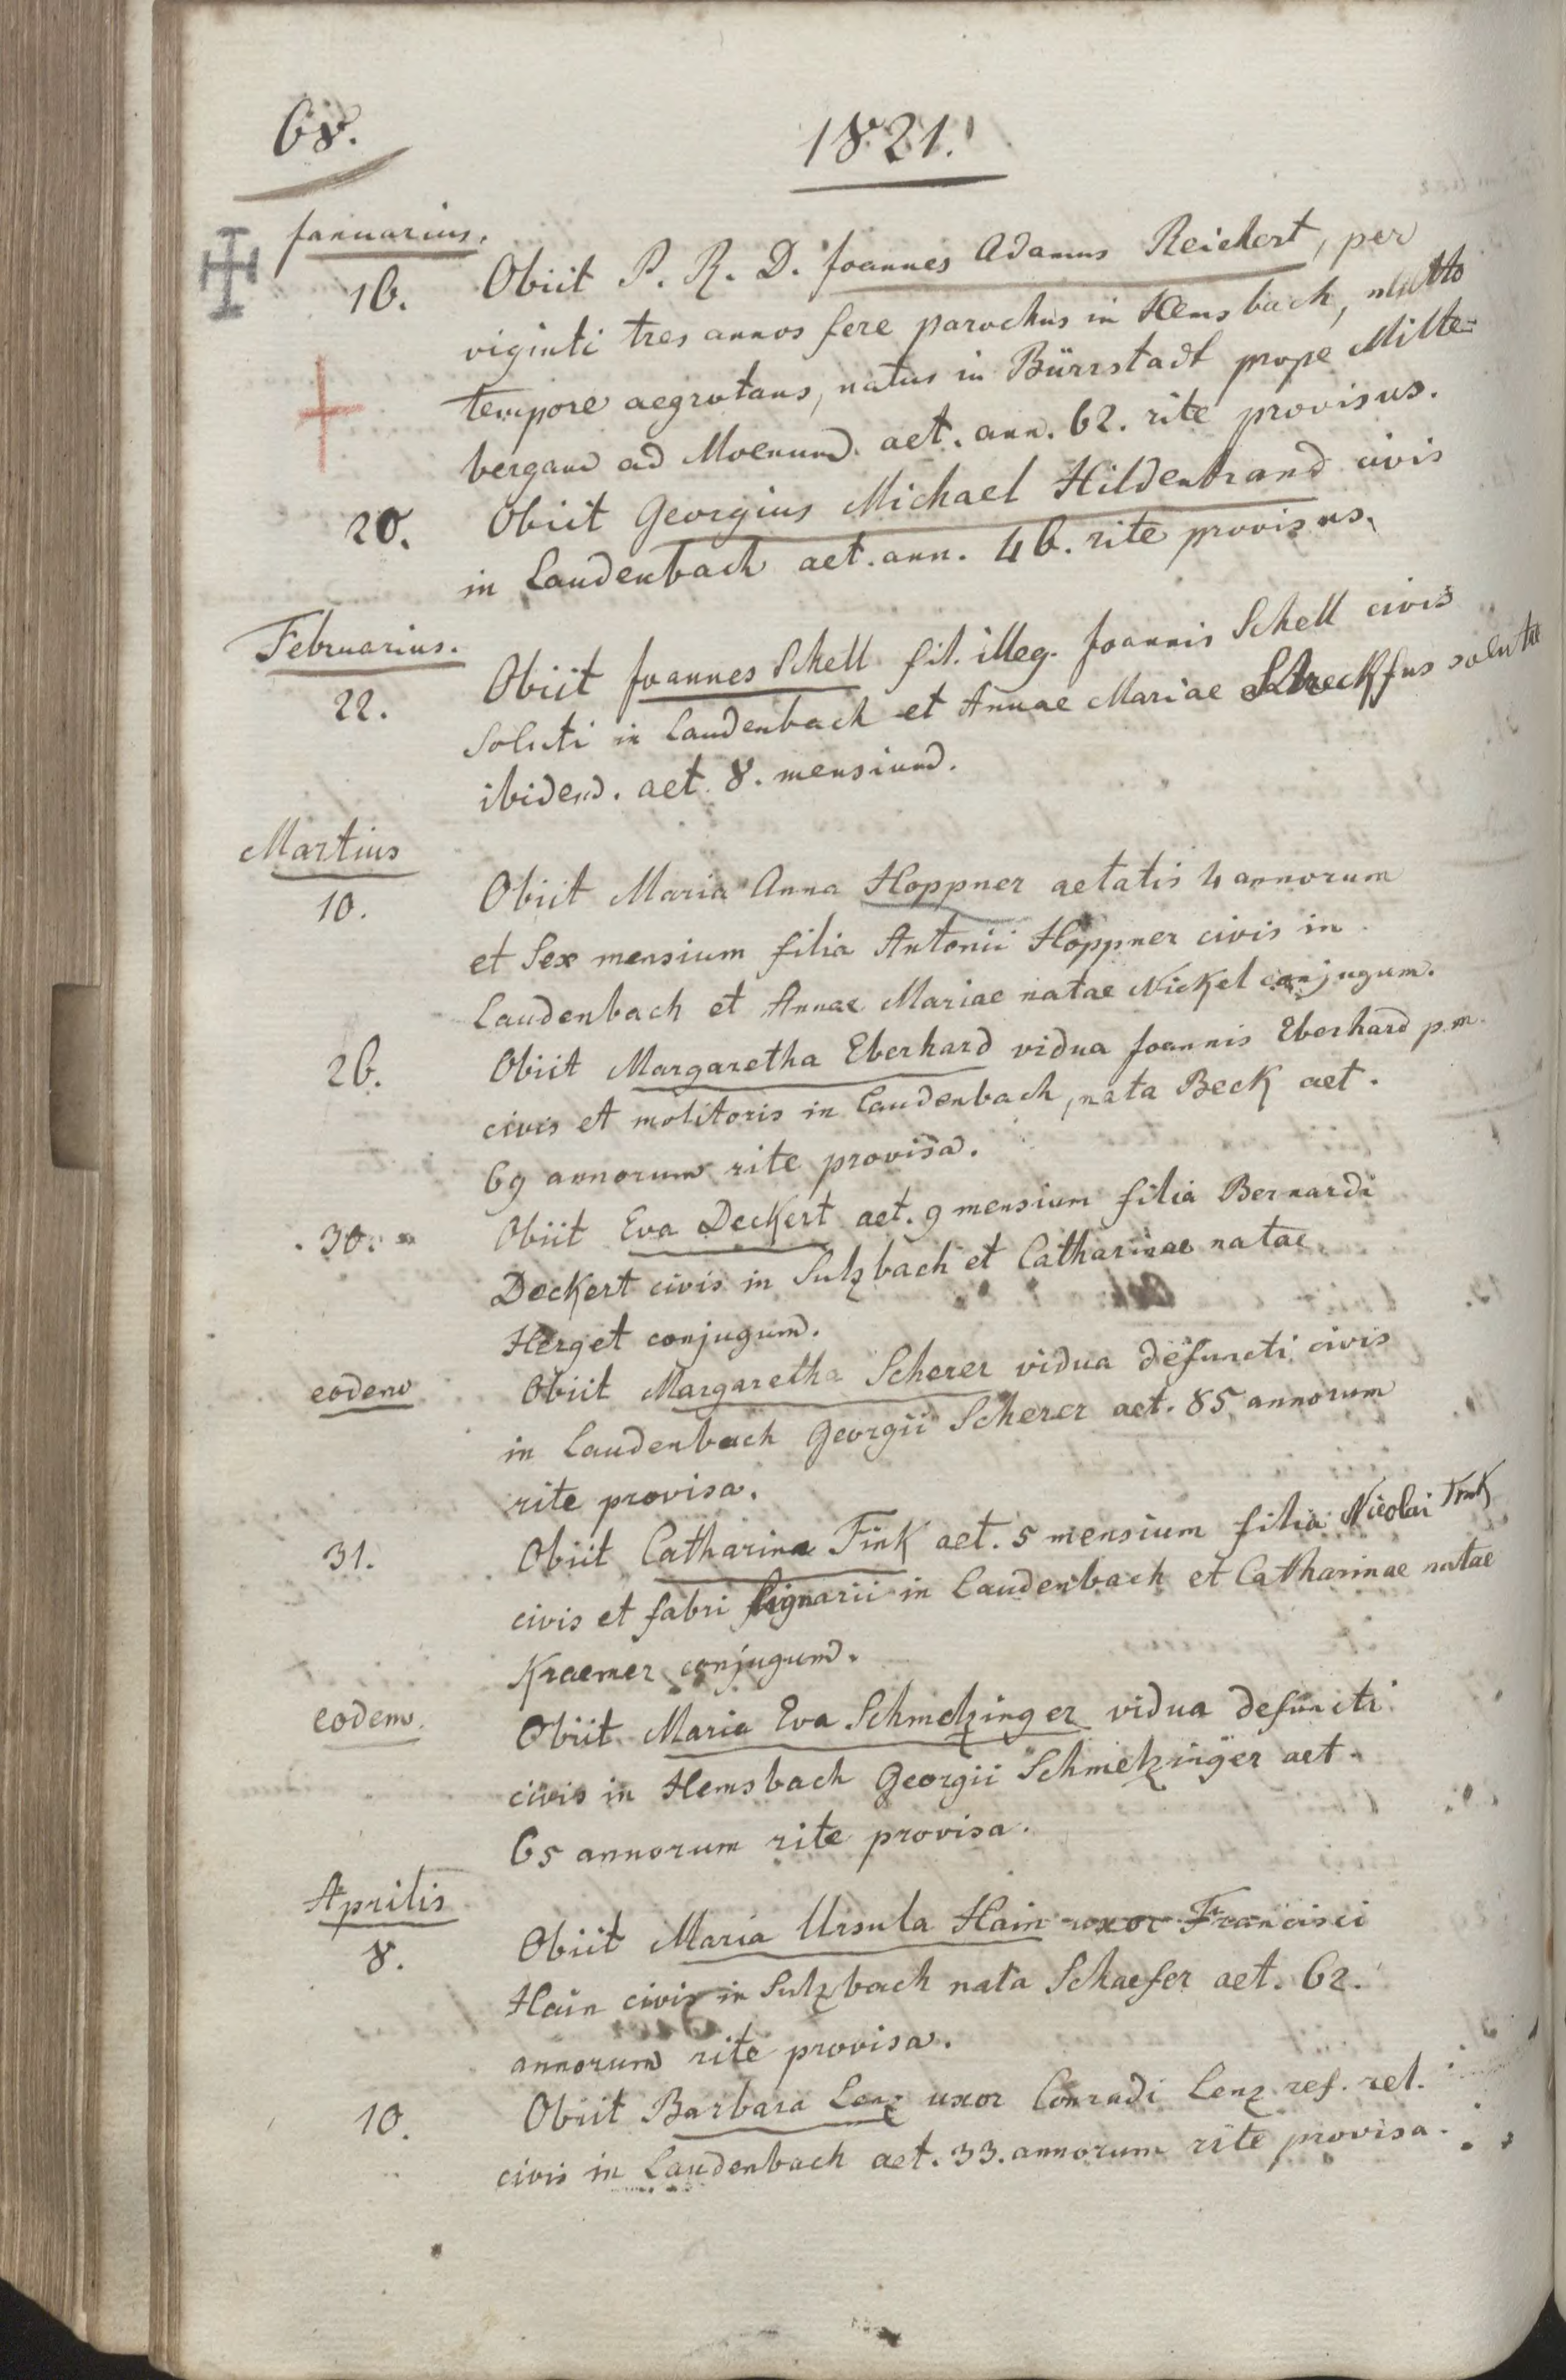 68.
1821.
Januarius.
16. Obiit P. R. D. Joannes Adamus Reichert, per
viginti tres annos fere parochus in Hemsbach, multo
tempore aegrotans, natus in Bürrstadt prope Milte-
bergam ad Moenum. aet. ann. 62. rite provisus.
20. Obiit Georgius Michael Hildenbrand civis
in Laudenbach aet. ann. 46. rite provisus.
Februarius.
22. Obiit Joannes Schell fil. illeg. Joannis Schell civis
soluti in Laudenbach et Annae Mariae Streckfus solutae
ibidem. aet. 8. mensium.
Martius
10. Obiit Maria Anna Hoppner aetatis 4 annorum
et sex mensium filia Antonii Hoppner civis in
Laudenbach et Annae Mariae natae Nickel conjugum.
26. Obiit Margaretha Eberhard vidua Joannis Eberhard p.m.
civis et molitoris in Laudenbach, nata Beck aet.
69 annorum rite provisa.
30. Obiit Eva Deckert aet. 9 mensium filia Bernardi
Deckert civis in Sulzbach et Catharinae natae
Herget conjugum.
eodem Obiit Margaretha Scherer vidua defuncti civis
in Laudenbach Georgii Scherer aet. 85 annorum
rite provisa.
31. Obiit Catharina Fink aet. 5 mensium filia Nicolai Fink
civis et fabri lignarii in Laudenbach et Catharinae natae
Kraemer conjugum.
eodem. Obiit Maria Eva Schmelzinger vidua defuncti
civis in Hemsbach Georgii Schmelzinger aet.
65 annorum rite provisa.
Aprilis
8. Obiit Maria Ursula Hain uxor Francisci
Hain civis in Sulzbach nata Schaefer aet. 62.
annorum rite provisa.
10. Obiit Barbara Lenz uxor Conradi Lenz ref. rel.
civis in Laudenbach aet. 33. annorum rite provisa.